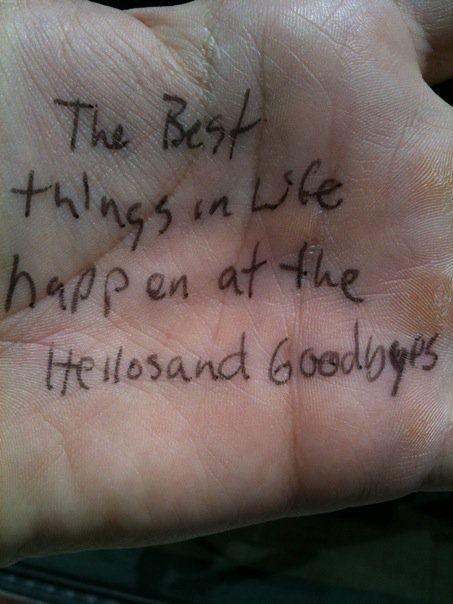 The Best
things in Life
happen at the
Hellos and Goodbyes